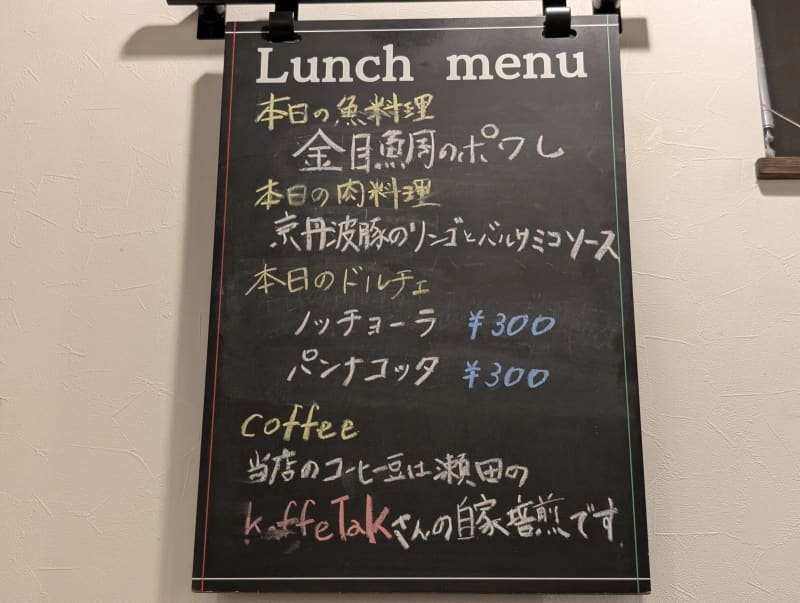 Lunch menu
本日の魚料理
金目鯛のポワレ
本日の肉料理
京丹波豚のリンゴとバルサミコソース
本日のドルチェ
ノッチョーラ ¥300
パンナコッタ ¥300
coffee
当店のコーヒー豆は瀬田の
kaffeTaKさんの自家焙煎です